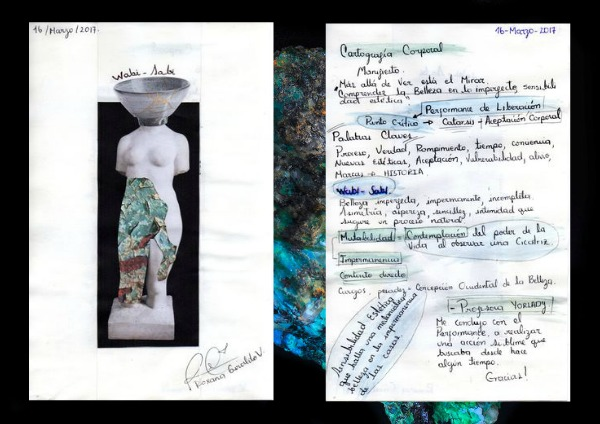 16/Marzo/2017.
Wabi-Sabi
Roxana Giraldo V.
16-Marzo-2017
Cartografía Corporal
Manifiesto.
"Más allá de Ver está el Mirar.
Comprender la Belleza en lo imperfecto, sensibili
dad estética"
Performance de Liberación
Punto Crítico → Catarsis + Aceptación Corporal
Palabras Claves
Proceso, Verdad, Rompimiento, tiempo,
Nuevas Estéticas, Aceptación, Vulnerabilidad, alivio,
Marcas → HISTORIA
Wabi-Sabi.
Belleza imperfecta, impermanente, incompleta.
Asimetría, aspereza, sencillez, intensidad que
sugiere un proceso natural
Mutabilidad = Contemplación del poder de la
Vida al observar una Cicatriz.
Impermanencia
Contexto directo
Cuerpos, = Concepción Occidental de la Belleza.
Sensibilidad Estética
que halla una melancólica
belleza en la impermanencia
de las cosas
- Profesora YORLADY
Me concluyo con el
Performance, a realizar
una acción sublime que
buscaba desde hace
algún tiempo.
Gracias!